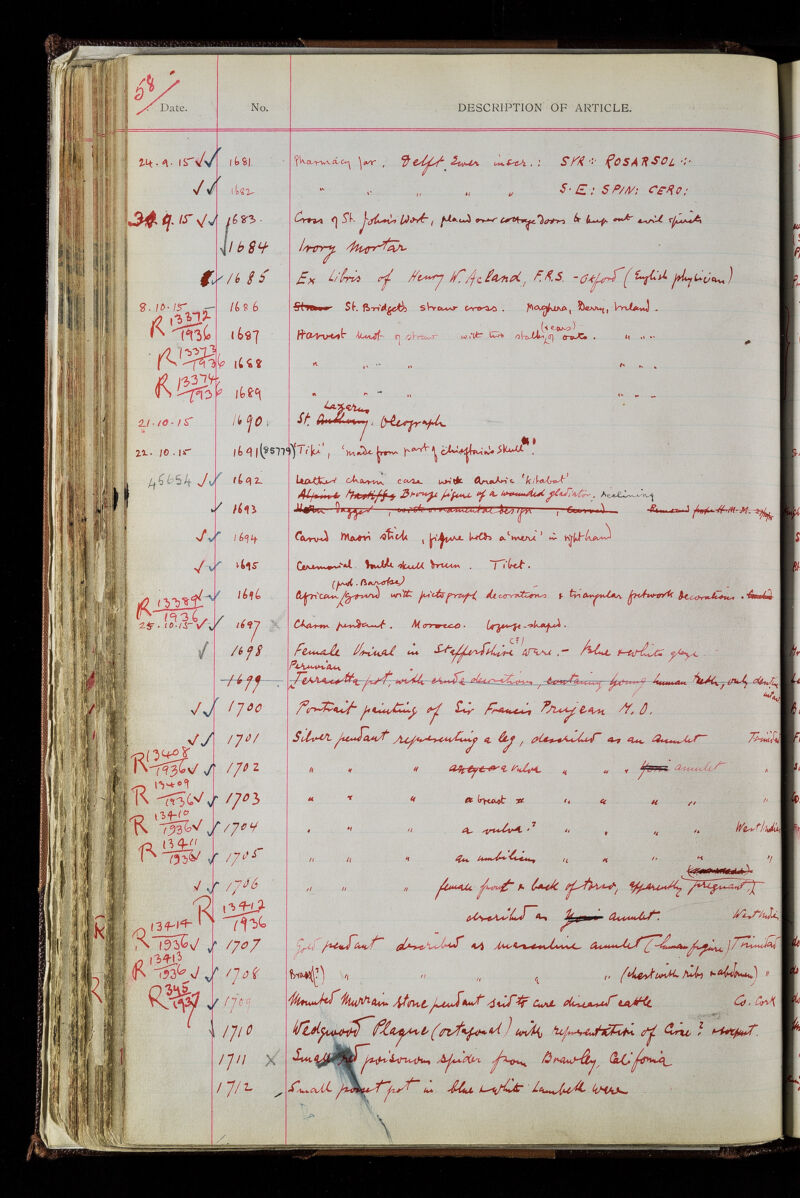 58
Date. No. DESCRIPTION OF ARTICLE.
24.9.15 1681 Pharmacy jar. Delft Ewer inscr.: SYR: ROSAR SOL:
1682 " " " " " S. E: SPIN: CERO:
30.9.15 1683. Cross of St. John's Wort, placed over cottage doors to keep out evil spirits
1684 Ivory Mortar
1685 Ex Libris of Henry W. Acland, F.R.S. - Oxford (English physician)
8.10.15 1686 Straw St. Bridget's straw cross. Maghera, Derry, Ireland.
R 13372/1936 1687 Harvest knot of straw with two stalks (ears) of oats. " " "
R 13373/1936 1688 " " " " " "
R 13374/1936 1689 " " " " " "
Lazarus
21.10.15 1690. St. Anthony. Oleograph
22.10.15 1691 (85779) 'Tiki', 'made from part of chieftain's skull'.
45654 1692 Leather charm case with Arabic 'kitabat'
Bronze figure of a wounded gladiator, reclining
1693 Horn Dagger, with ornamental design, Carved Removed from H.M.M.
1694 Carved Maori stick, figure holds a 'meri' in right hand
1695 Ceremonial double skull drum. Tibet.
(prob. Barotse)
R 13389/1936 1696 African gourd with pictograph decorations & triangular fretwork decorations.
25.10.15 1697 Charm pendant. Morocco. lozenge-shaped.
1698 Female Urinal in Staffordshire (?) ware. - blue & white glaze
Peruvian
1699 Terracotta pot, with crude decoration, containing young human teeth, only
1700 Portrait painting of Sir Francis Prujean M.D.
1701 Silver pendant representing a leg, described as an amulet Trinidad
R 13408/1936 1702 " " " an eye or a vulva " " " Yoni amulet "
R 13409/1936 1703 " " " a breast " " " " "
R 13410/1936 1704 " " " a vulva? " " " " West Indies
R 13411/1936 1705 " " " an umbilicus " " " " "
1706 " " " female front & back of torso, apparently pregnant
R 13412/1936 described as Yoni amulet. West Indies
R 13414/1936 1707 Gold pendant described as masculine amulet (human figure) Trinidad
R 13413/1936 1708 Brass(?) " " " " (chest with ribs & abdomen) "
R 345/1937 1709 Mounted Murrain Stone pendant said to cure diseased cattle Co. Cork
1710 Wedgwood Plaque (octagonal) with representation of Circe? & serpent.
1711 X Small red poisonous spider from Brawley, California
1712 Small posset pot in blue & white Lambeth ware